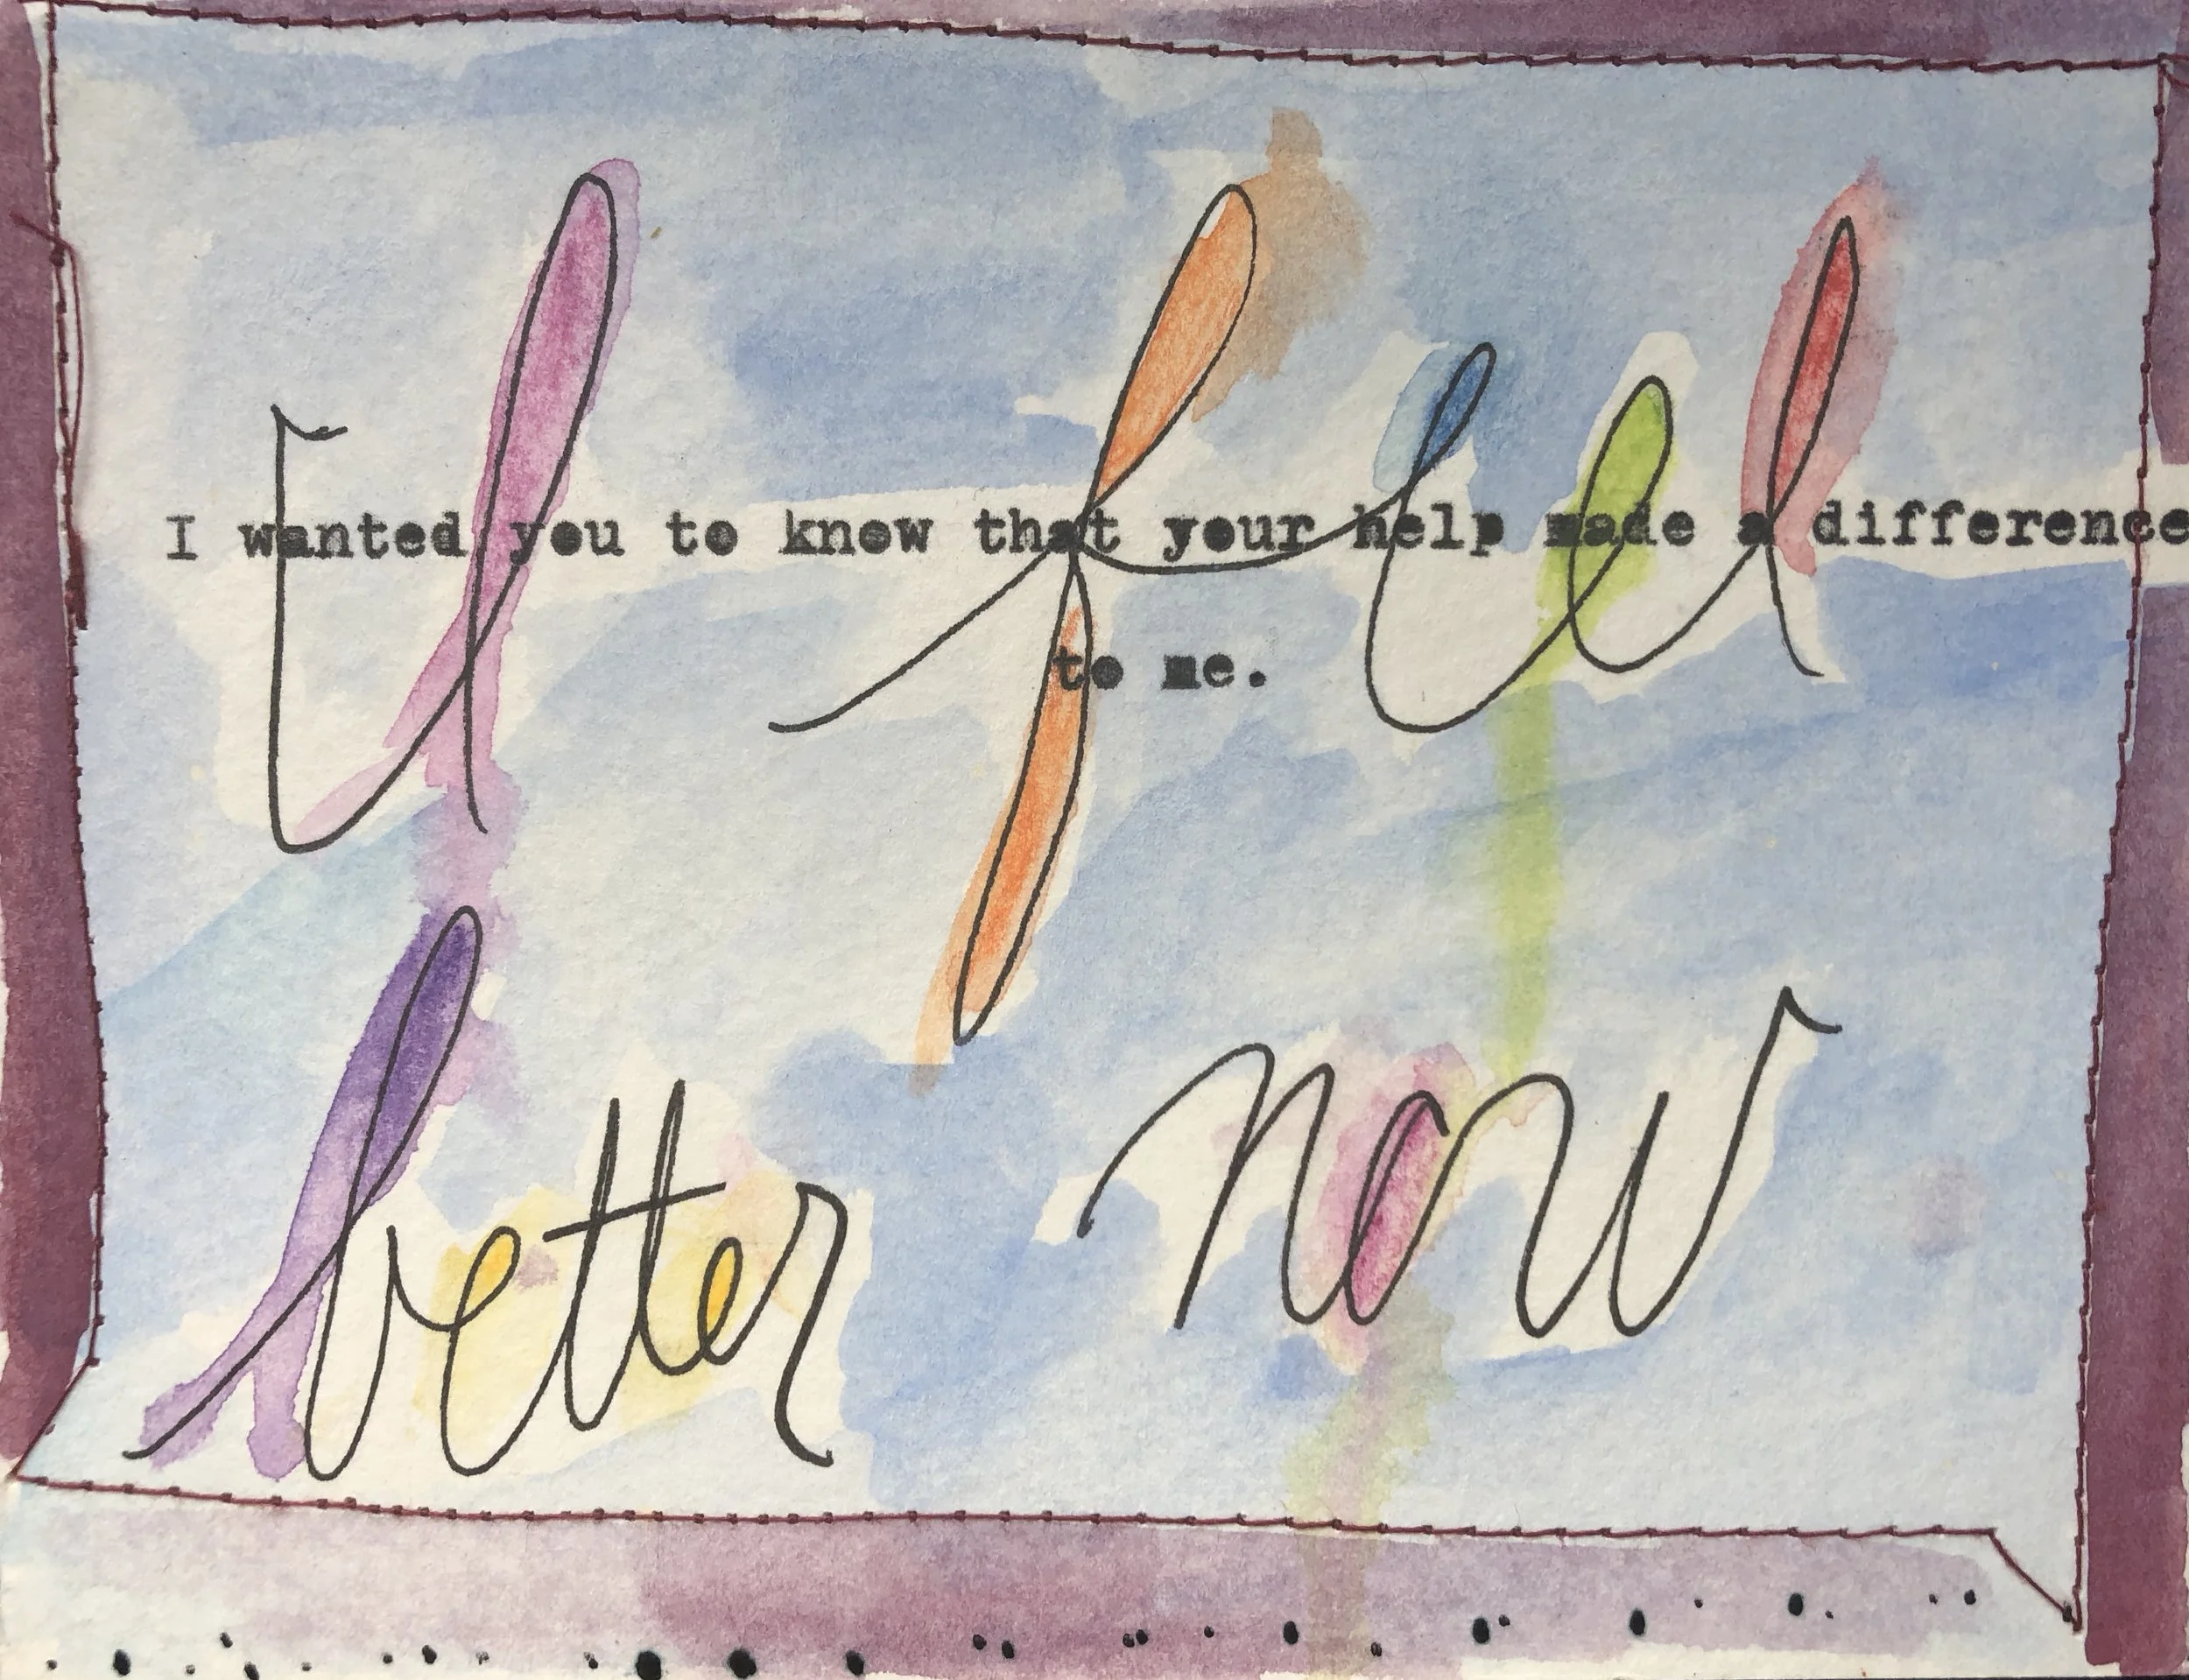 I feel
I wanted you to know that your help made a difference
to me.
better now